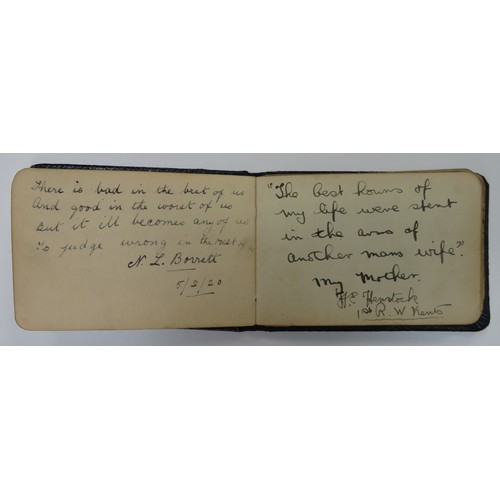 There is bad in the best of us
And good in the worst of us
But it ill becomes any of us
To judge wrong in the rest of us
N. L. Borrett
5/2/20
"The best hours of
my life were spent
in the arms of
another mans wife".
My Mother.
H.E Henstock
1st R. W Kents